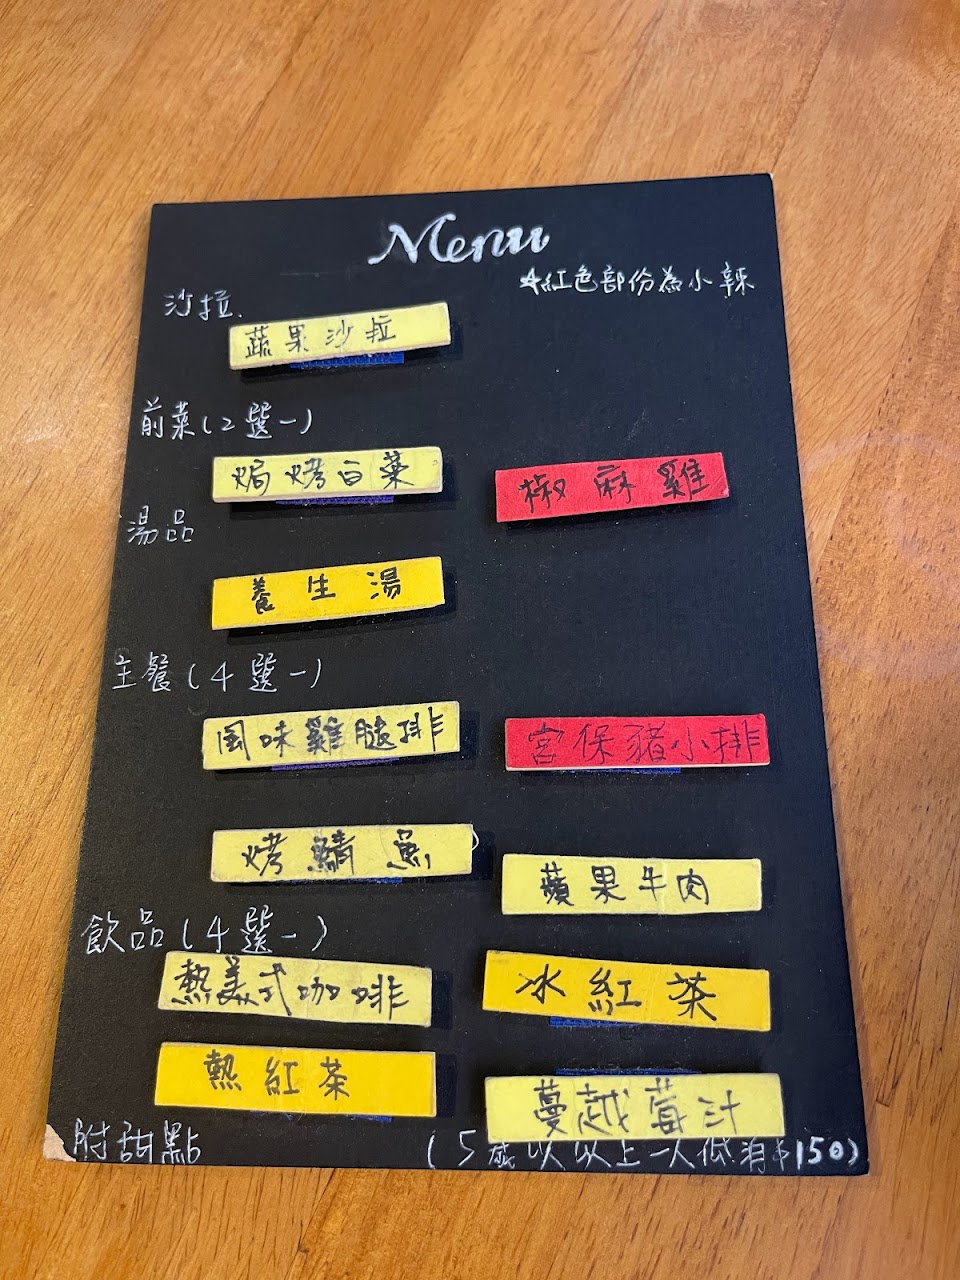 Menu
☆紅色部份為小辣
沙拉.
蔬果沙拉
前菜(2選一)
焗烤白菜
椒麻雞
湯品
養生湯
主餐(4選一)
風味雞腿排
宮保豬小排
烤鯖魚
蘋果牛肉
飲品(4選一)
熱美式咖啡
冰紅茶
熱紅茶
蔓越莓汁
附甜點
(5歲以以上一人低消$150)